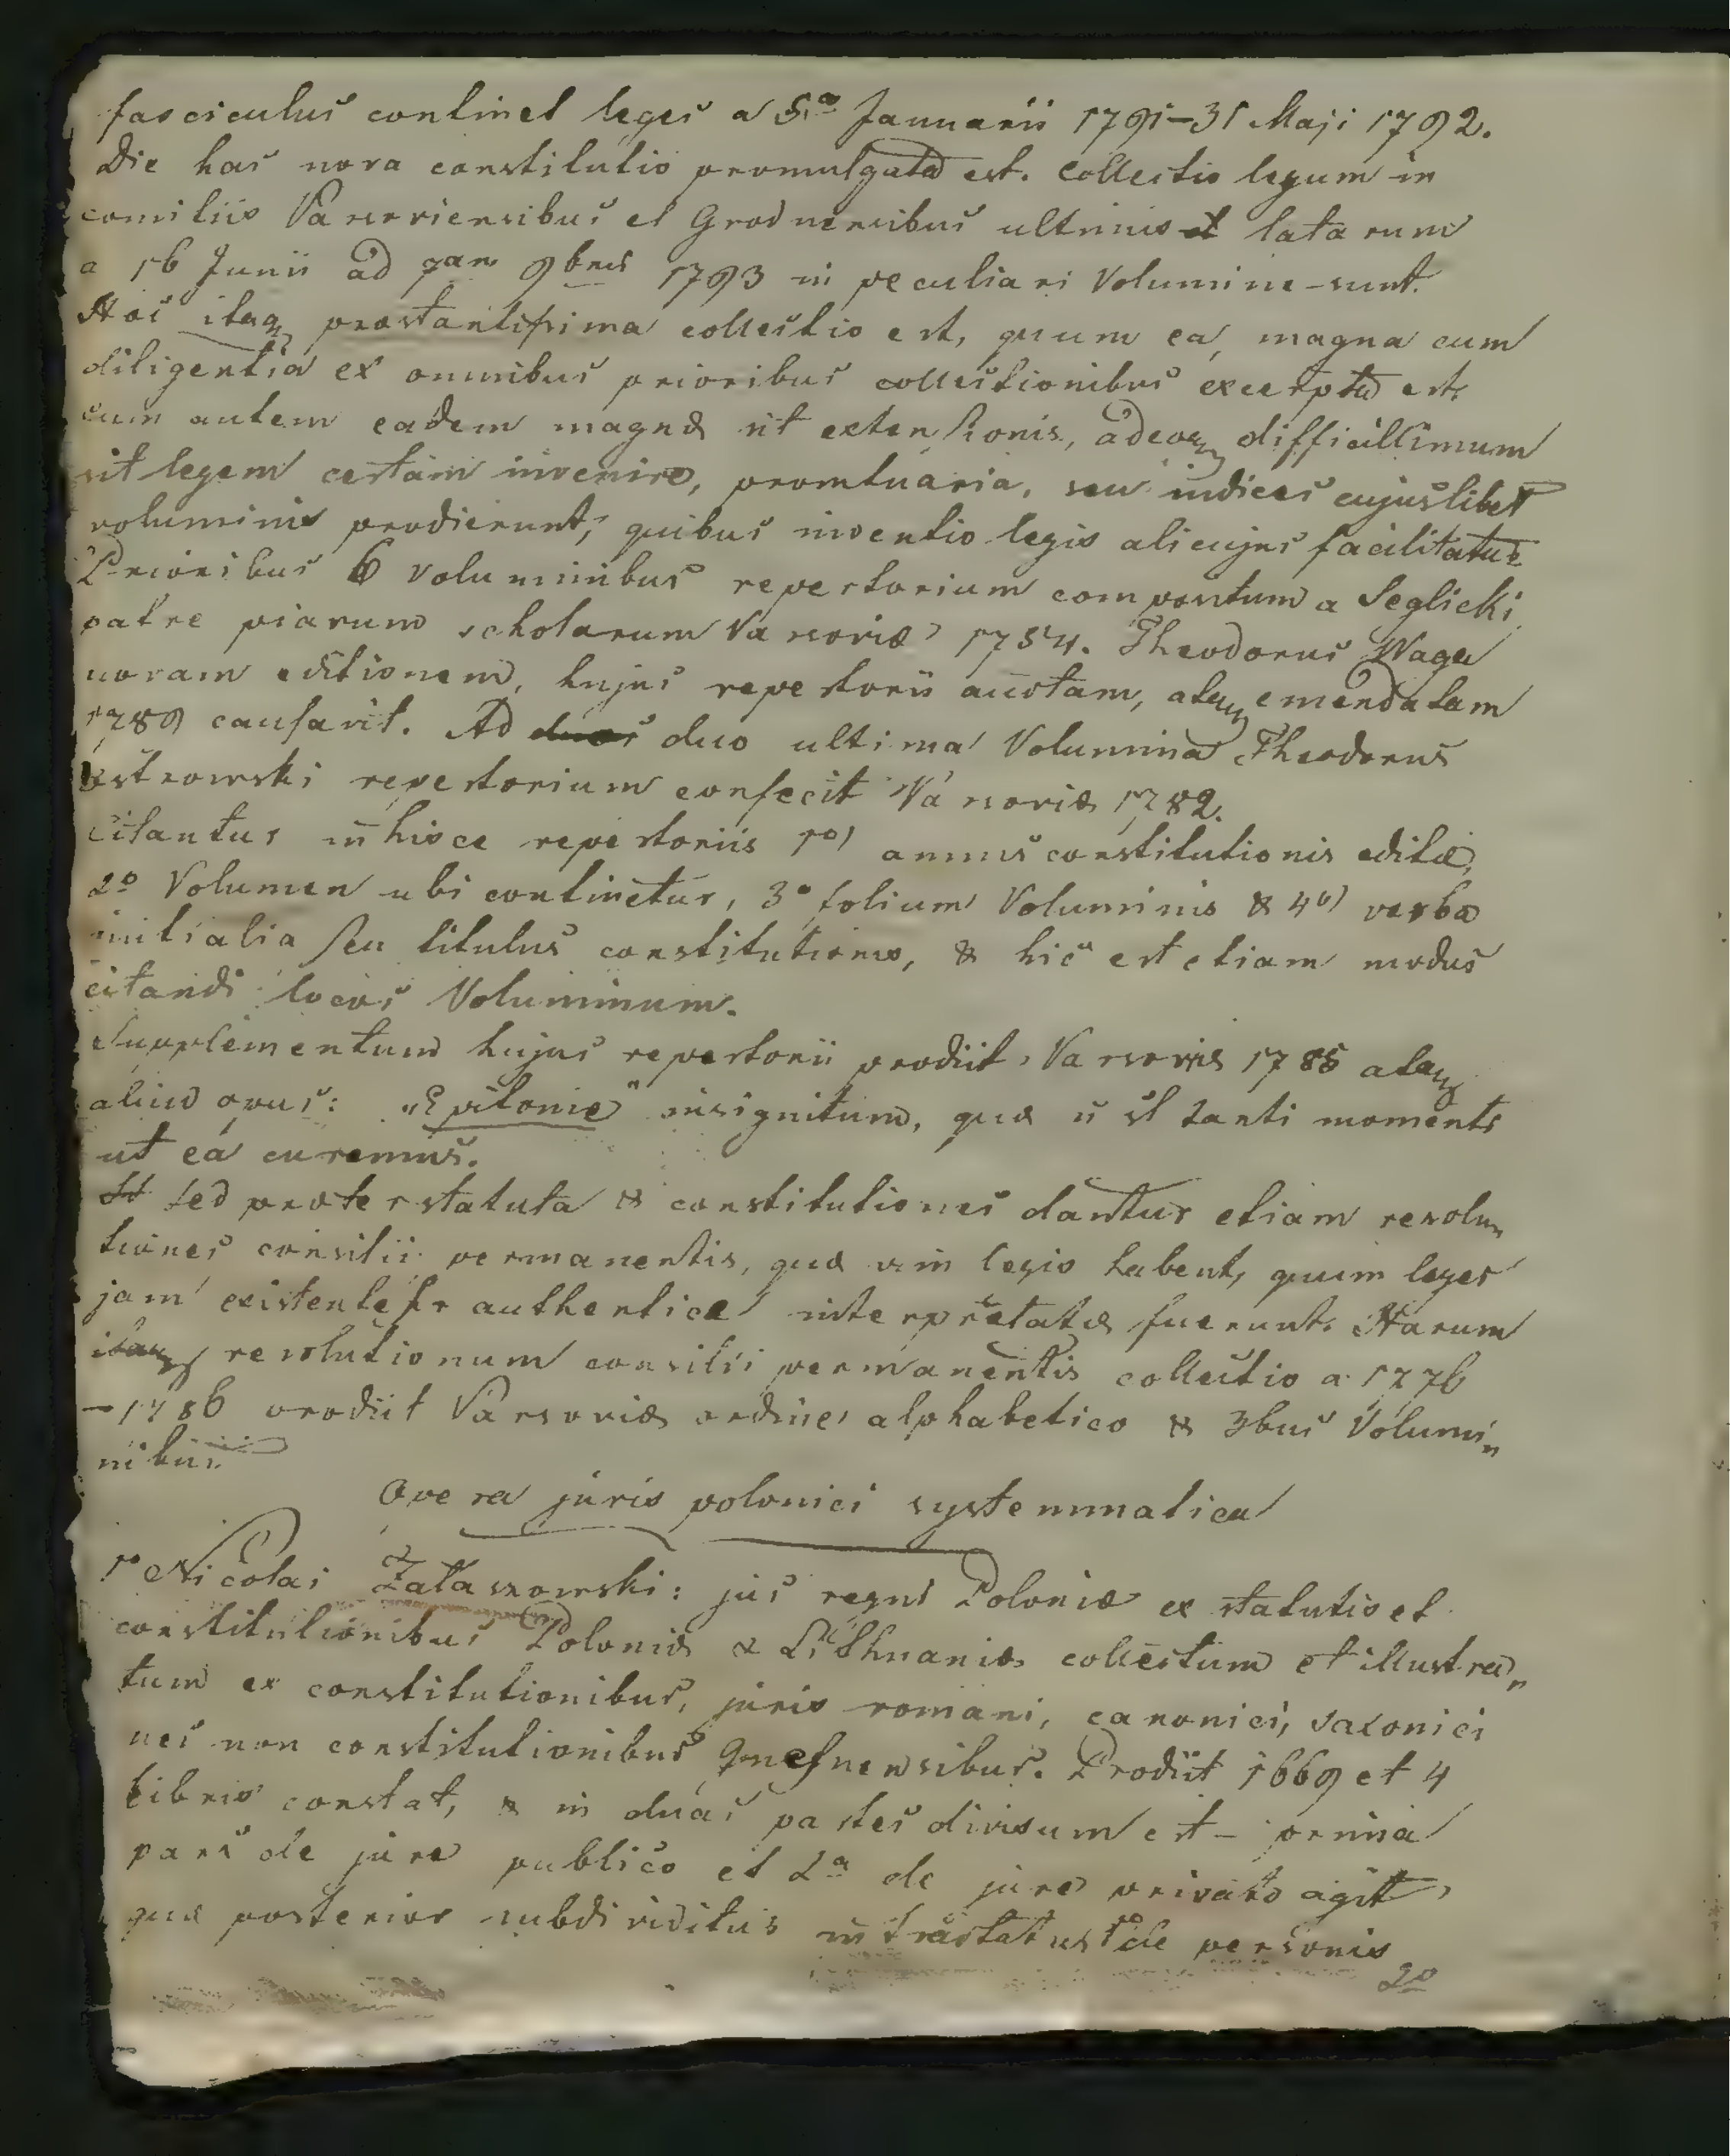 fasciculus continet leges a 3ia Januarii 1791–31 Maji 1792.
Die hac nova constitutio promulgata est. Collectio legum in
comitiis Varsoviensibus et Grodnensibus ultimis et latarum
a 16 Junii ad 7am 9bris 1793 in peculiari Volumine sunt.
Hoc itaq præstantissima collectio est, quum ea, magna cum
diligentia ex omnibus prioribus collectionibus excerpta est.
cum autem eadem magnæ sit extensionis, adeoq difficillimum
sit legem certam invenire, promtuaria, seu indices cujuslibet
voluminis prodierunt, quibus inventio legis alicujus facilitatur
Prioribus 6 voluminibus repertorium compositum a Seglicki
patre piarum scholarum Varsoviæ 1754. Theodorus Waga
novam editionem, hujus repertorii auctam, atq emendatam
1789 causavit. Ad duos duo ultima Volumina Theodorus
Ostrowski repertorium confecit Varsoviæ 1782.
Citantur in hisce repertoriis 1o) annus constitutionis editæ,
2o Volumen ubi continetur, 3o folium Voluminis & 4o) verba
initialia seu titulus constitutionis, & hic est etiam modus
citandi locos Voluminum.
Supplementum hujus repertorii prodiit Varsoviæ 1785 atq
aliud opus: „Epitome" insignitum, quæ ñ st tanti momenti
ut ea curemus.
St Sed præter statuta & constitutiones dantur etiam resolu„
tiones consilii permanentis, quæ vim legis habent, quum leges
jam existentes per authentice interpretatæ fuerunt. Harum
itaq resolutionum consilii permanentis collectio a 1776
–1786 prodiit Varsoviæ ordine alphabetico & 3bus Volumi„
nibus.
Opera juris polonici systemmatica
1o Nicolai Zalaszowski: jus regni Poloniæ ex statutis et
constitutionibus Poloniæ & Lithuaniæ collectum et illustra„
tum ex constitutionibus, juris romani, canonici, saxonici
nec non constitutionibus Gnesnensibus. Prodiit 1669 et 4
libris constat, & in duas partes divisum est – prima
pars de jure publico et 2a de jure privato agit
quæ posterior subdividitur in tractatus 1o de personis
2o